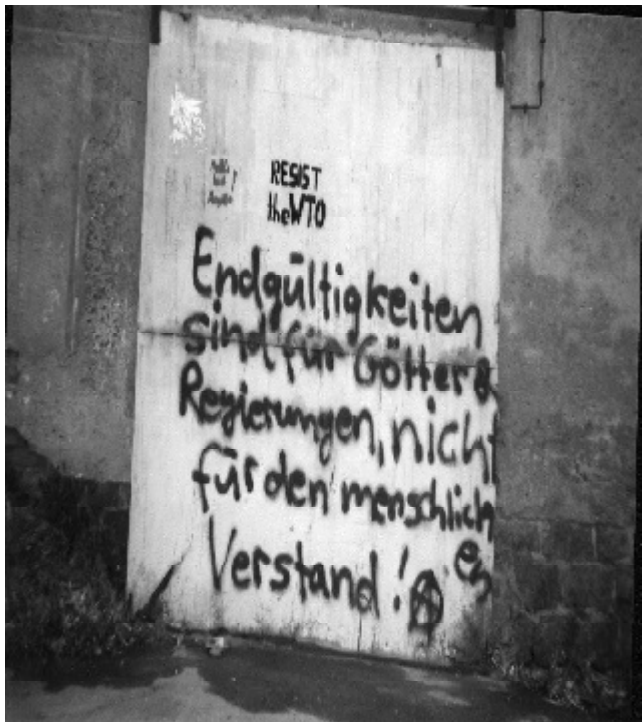 RESIST
the WTO
Endgültigkeiten
sind für Götter &
Regierungen, nicht
für den menschlich
en
Verstand!